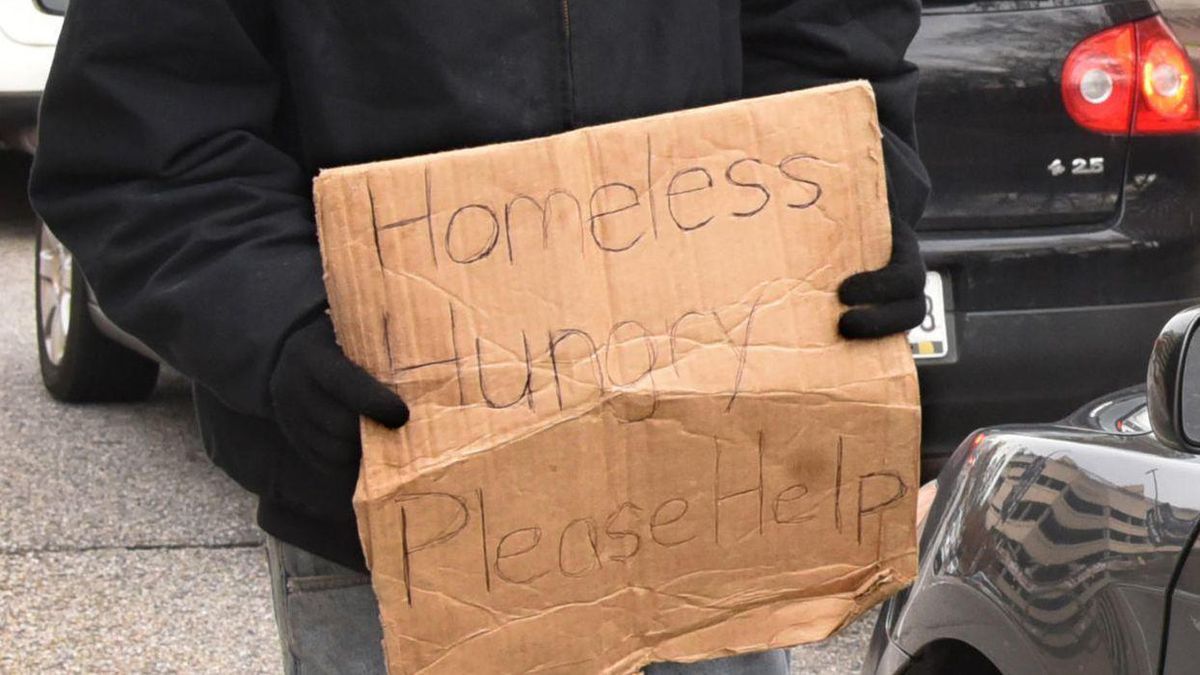 Homeless
Hungry
Please Help
2.5